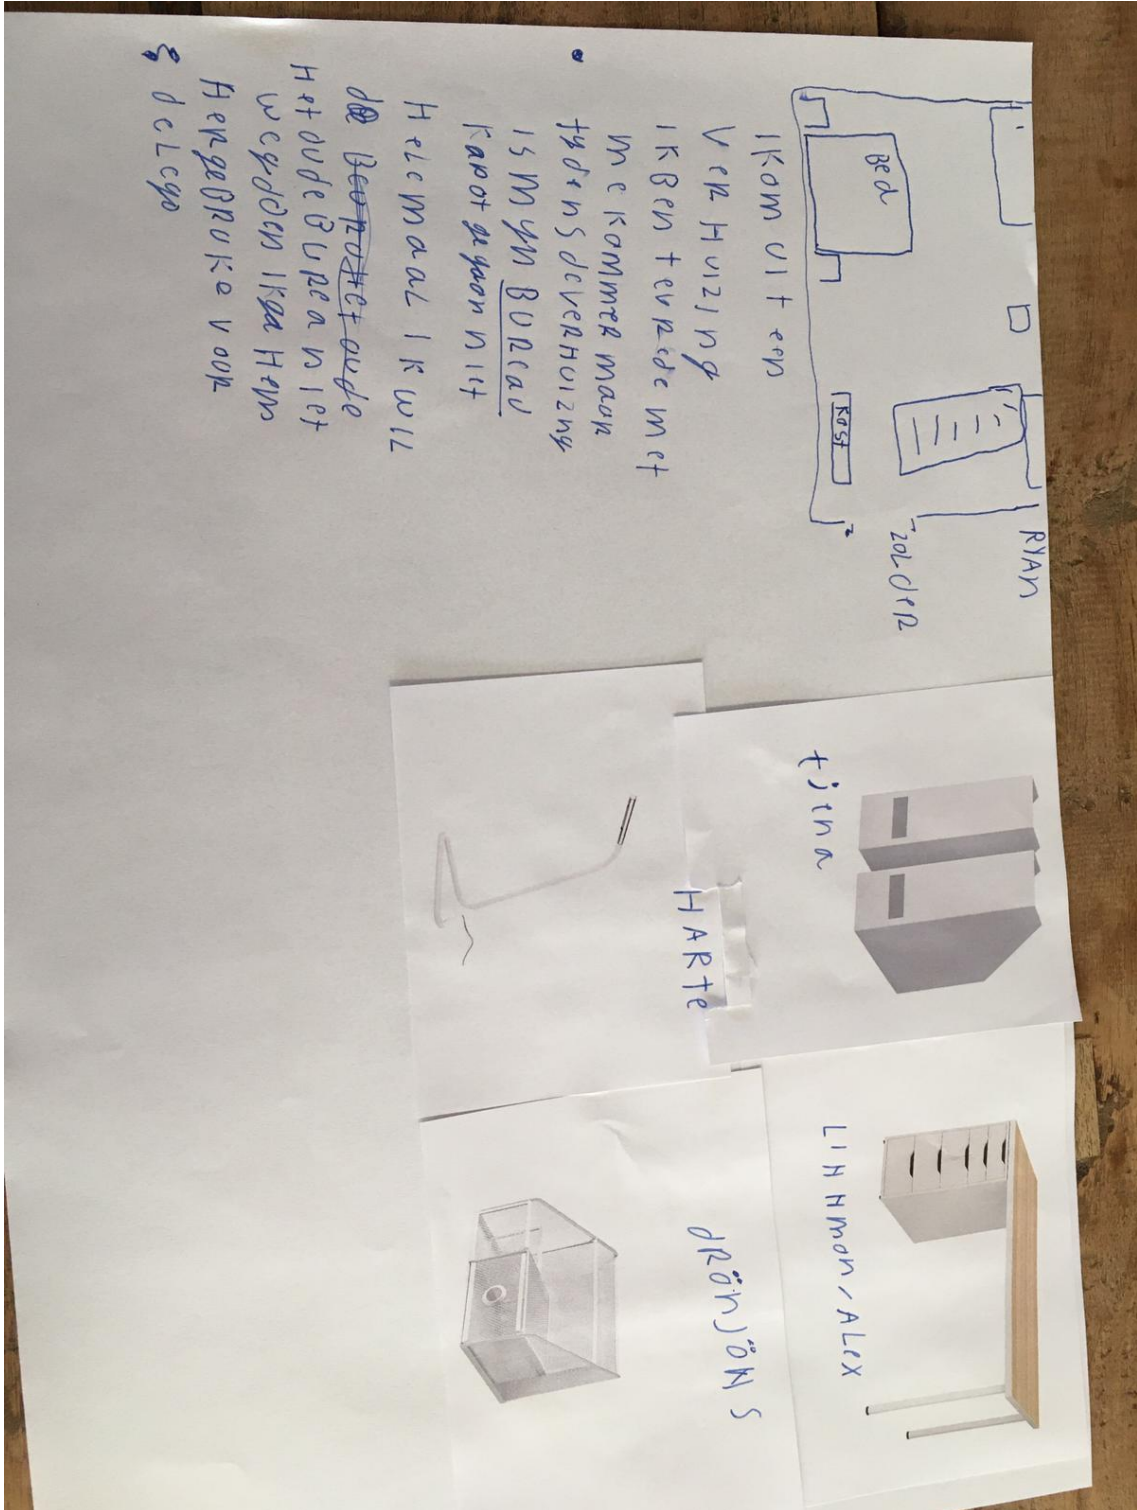 RYAN
ZOLDER
Bed
KAST
IKom uit een
VerHuizing
IKBen tevrede met
me Kammer maar
tydens deverHuizing
is myn BUReau
Kapot gegaan niet
Helemaal IK wil
de Bureau Het oude
Het oude Burea niet
wegdoen IKga Hem
HergeBRuKe voor
& deLego
tjena
HARte
LINNmon/ALex
dRönJöNS